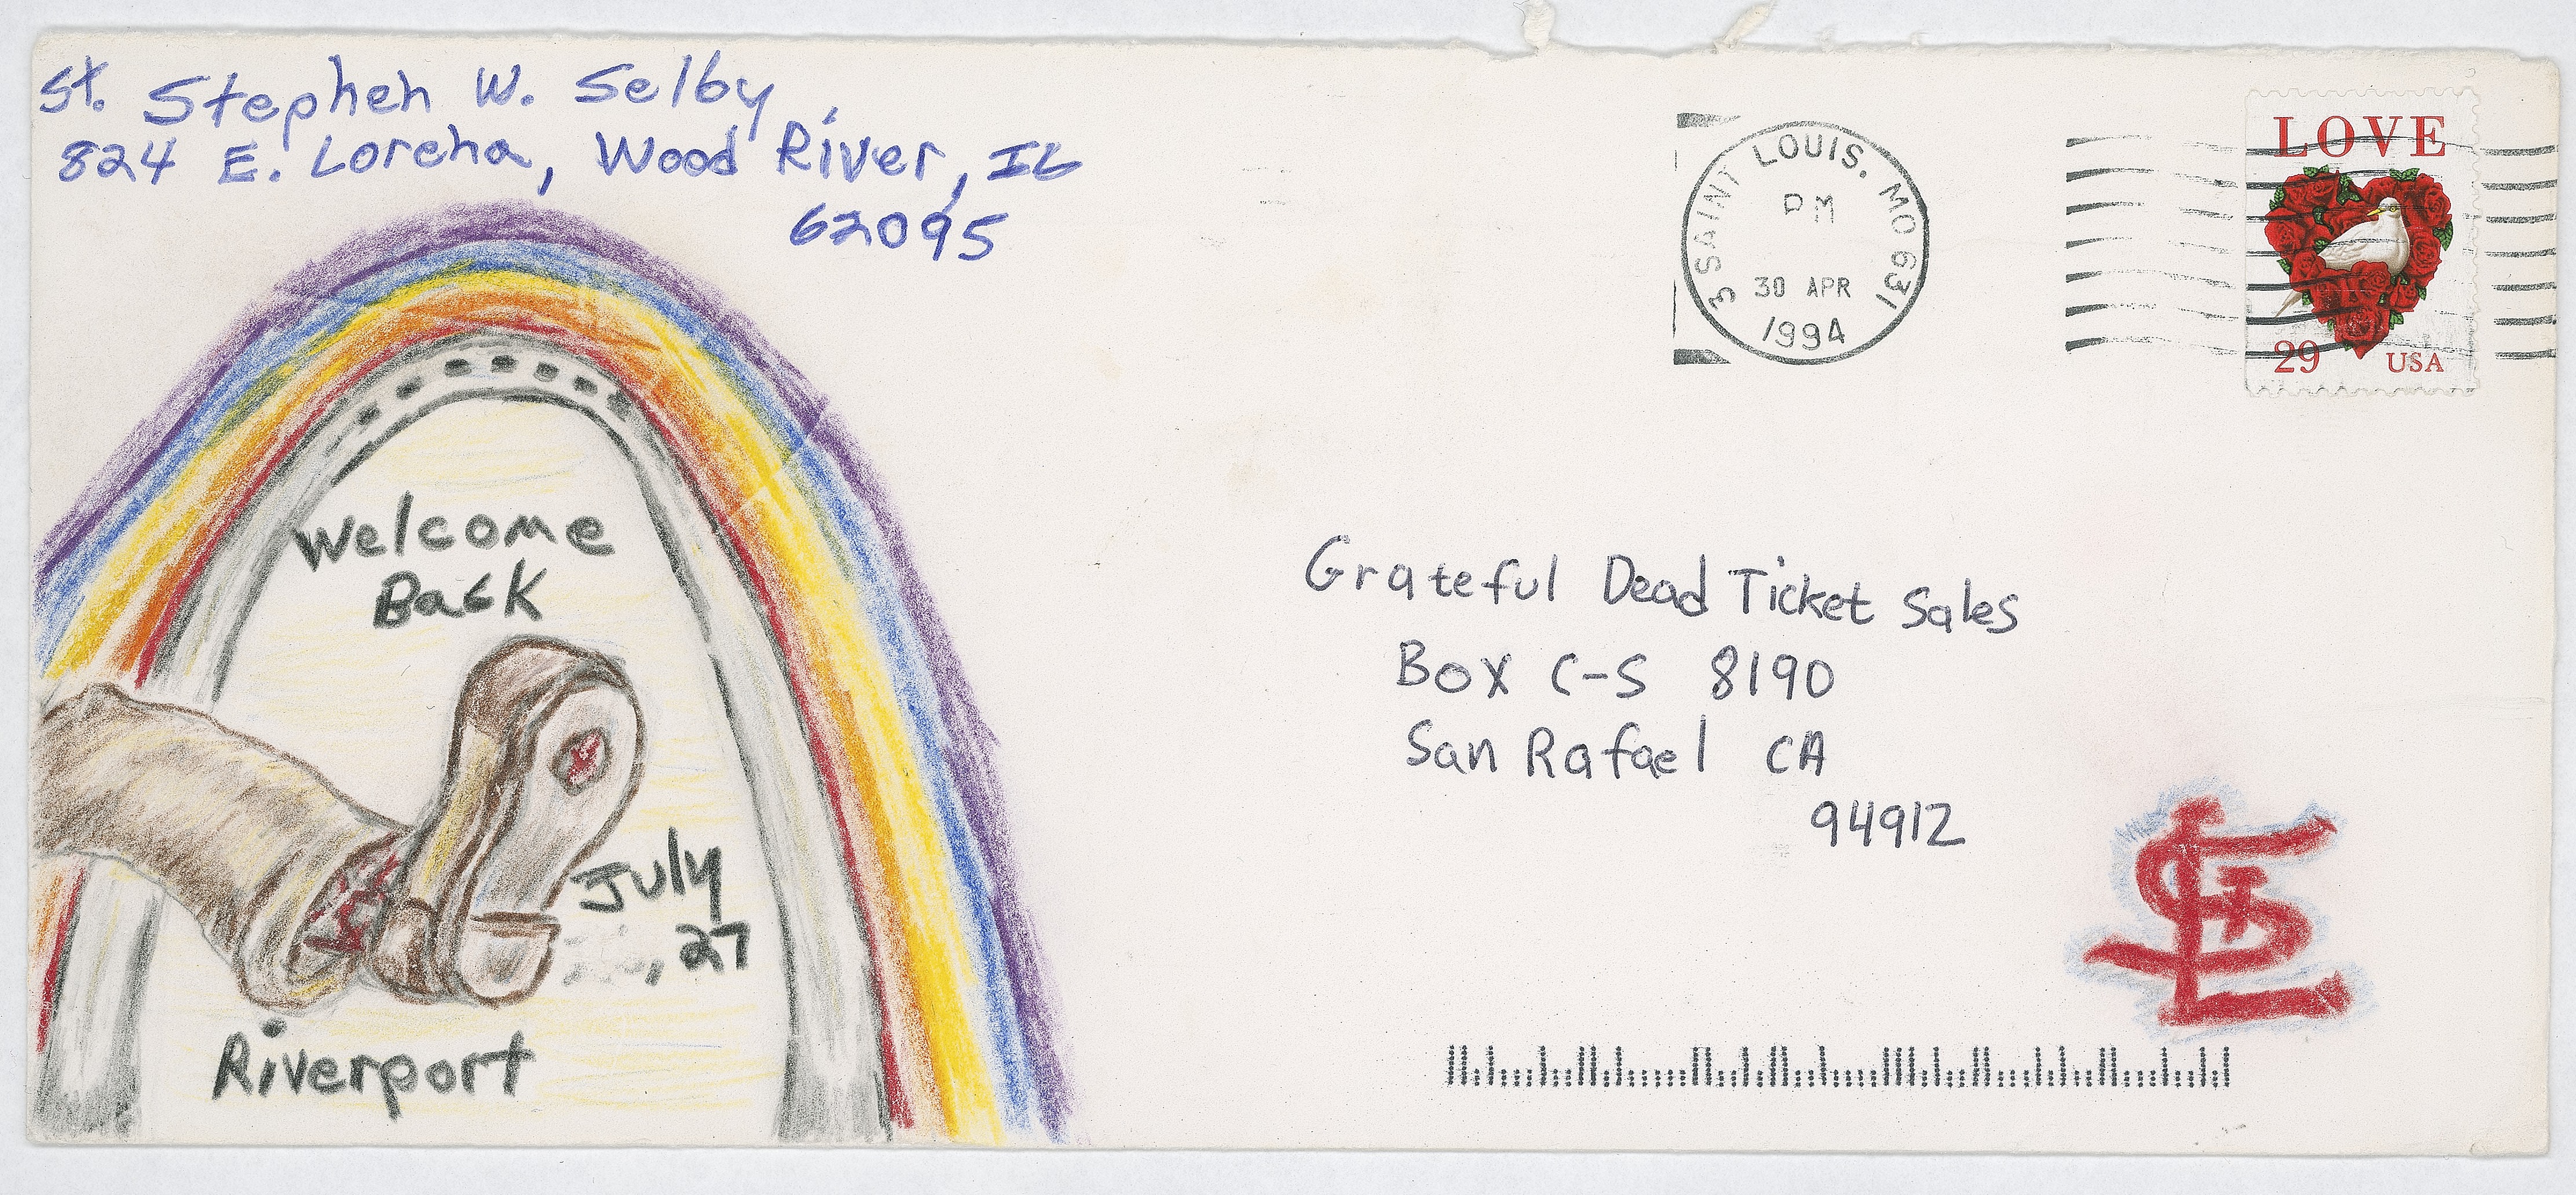 St. Stephen W. Selby,
824 E. Lorena, Wood River, IL
62095
SAINT LOUIS. MO 631
PM
30 APR
1994
LOVE
29 USA
Welcome
Back
July
, 27
Riverport
Grateful Dead Ticket Sales
Box C-S 8190
San Rafael CA
94912
STL